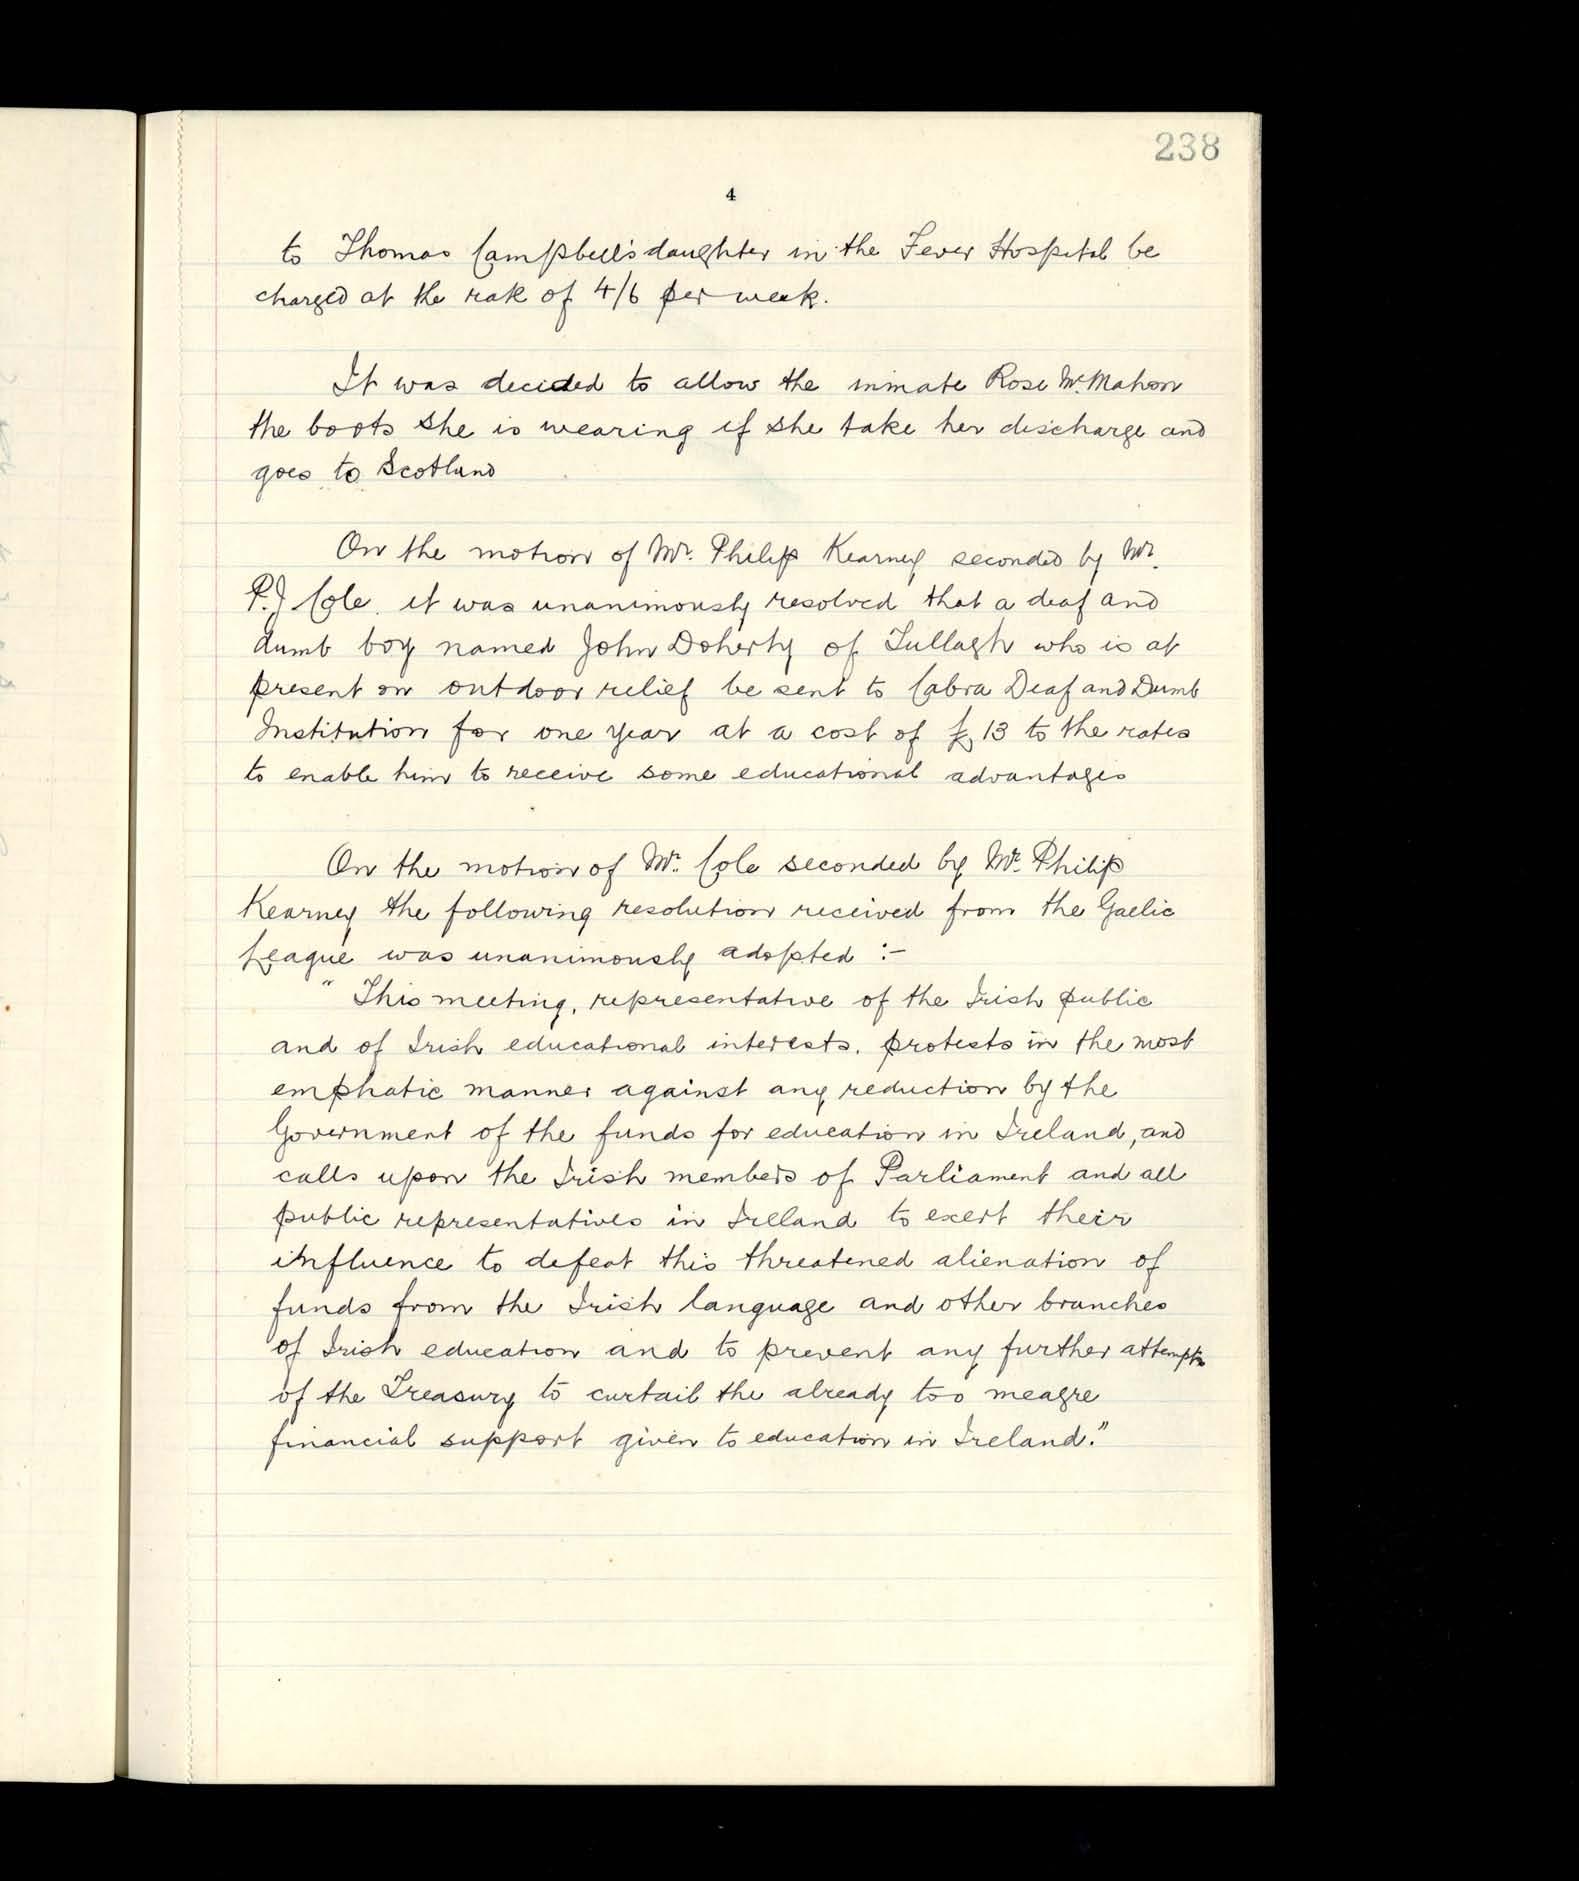 238
4
to Thomas Campbell's daughter in the Fever Hospital be
charged at the rate of 4/6 per week.
It was decided to allow the inmate Rose Mc.Mahon
the boots she is wearing if she take her discharge and
goes to Scotland
On the motion of Mr. Philip Kearney seconded by Mr.
P.J Cole. it was unanimously resolved that a deaf and
dumb boy named John Doherty of Tullagh who is at
present on outdoor relief be sent to Cabra Deaf and Dumb
Institution for one year at a cost of £13 to the rates
to enable him to receive some educational advantages
On the motion of Mr. Cole seconded by Mr. Philip
Kearney the following resolution received from the Gaelic
League was unanimously adopted :-
" This meeting, representative of the Irish public
and of Irish educational interests. protests in the most
emphatic manner against any reduction by the
Government of the funds for education in Ireland, and
calls upon the Irish members of Parliament and all
public representatives in Ireland to exert their
influence to defeat this threatened alienation of
funds from the Irish language and other branches
of Irish education and to prevent any further attempts
of the Treasury to curtail the already too meagre
financial support given to education in Ireland."